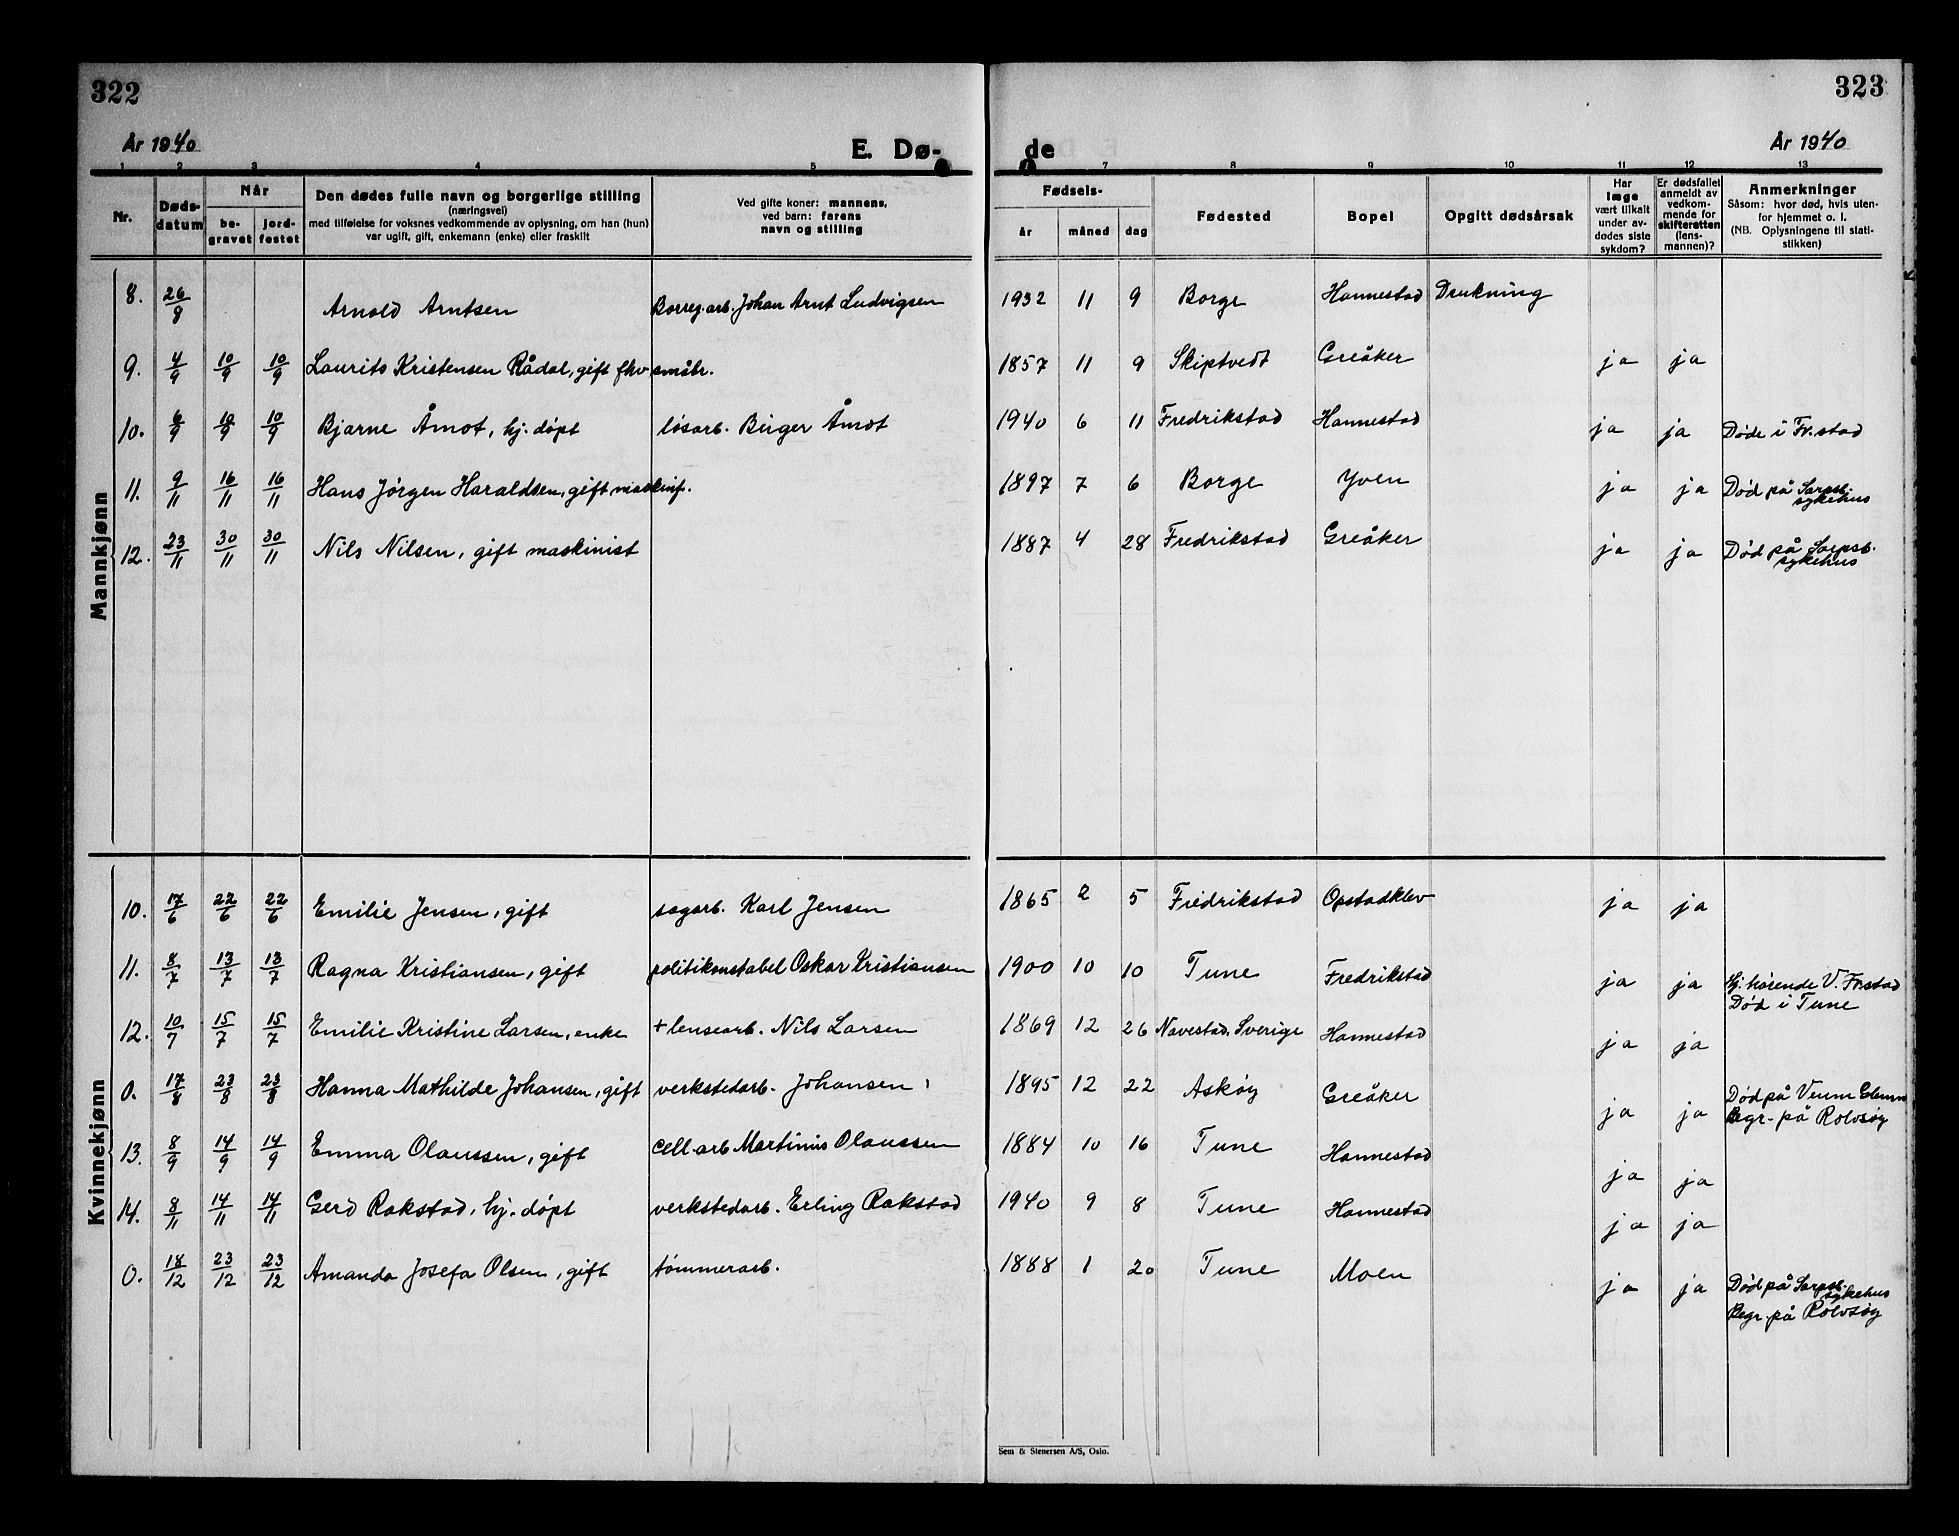 322
323
År 1940
E. Dø-
de
År 1940
1 2 3 4 5 7 8 9 10 11 12 13
Nr.
Døds-
datum
Når
be-
gravet
jord-
festet
Den dødes fulle navn og borgerlige stilling
(næringsvei)
med tilføielse for voksnes vedkommende av oplysning, om han (hun)
var ugift, gift, enkemann (enke) eller fraskilt
Ved gifte koner: mannens,
ved barn: farens
navn og stilling
Fødsels-
år måned dag
Fødested
Bopel
Opgitt dødsårsak
Har
læge
vært tilkalt
under av-
dødes siste
sykdom?
Er dødsfallet
anmeldt av
vedkom-
mende for
skifteretten
(lens-
mannen)?
Anmerkninger
Såsom: hvor død, hvis uten-
for hjemmet o. l.
(NB. Oplysningene til stati-
stikken)
Mannkjønn
8. 26/8 Arnold Arntsen Borreg.arb. Johan Arnt Ludvigsen 1932 11 9 Borge Hannestad Drukning
9. 4/9 10/9 10/9 Laurits Kristensen Rådal, gift fhv småbr. 1857 11 9 Skiptvedt Greåker ja ja
10. 6/9 10/9 10/9 Bjarne Åmot, hj. døpt løsarb. Birger Åmot 1940 6 11 Fredrikstad Hannestad ja ja Døde i Fr.stad
11. 9/11 16/11 16/11 Hans Jørgen Haraldsen, gift maskinf. 1897 7 6 Borge Yven ja ja Død på Sarpsb.
sykehus
12. 23/11 30/11 30/11 Nils Nilsen, gift maskinist 1887 4 28 Fredrikstad Greåker ja ja Død på Sarpsb.
sykehus
Kvinnekjønn
10. 17/6 22/6 22/6 Emilie Jensen, gift sagarb. Karl Jensen 1865 2 5 Fredrikstad Opstadklev ja ja
11. 8/7 13/7 13/7 Ragna Kristiansen, gift politikonstabel Oskar Kristiansen 1900 10 10 Tune Fredrikstad ja ja Hj. hørende V. Fr.stad
Død i Tune
12. 10/7 15/7 15/7 Emilie Kristine Larsen, enke + lensearb. Nils Larsen 1869 12 26 Navestad, Sverige Hannestad ja ja
0. 17/8 23/8 23/8 Hanna Mathilde Johansen, gift verkstedarb. Johansen 1895 12 22 Askøy Greåker ja ja Død på Veum Glemm
Begr. på Rolvsøy
13. 8/9 14/9 14/9 Emma Olaussen, gift cell.arb Martinius Olaussen 1884 10 16 Tune Hannestad ja ja
14. 8/11 14/11 14/11 Gerd Rakstad, hj. døpt verkstedarb. Erling Rakstad 1940 9 8 Tune Hannestad ja ja
0. 18/12 23/12 23/12 Amanda Josefa Olsen, gift tømmerarb. 1888 1 20 Tune Moen ja ja Død på Sarpsb.
sykehus
Begr. på Rolvsøy
Sem & Stenersen A/S, Oslo.